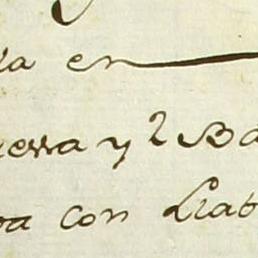 la en
uerra y 2 Ba
va con Liab